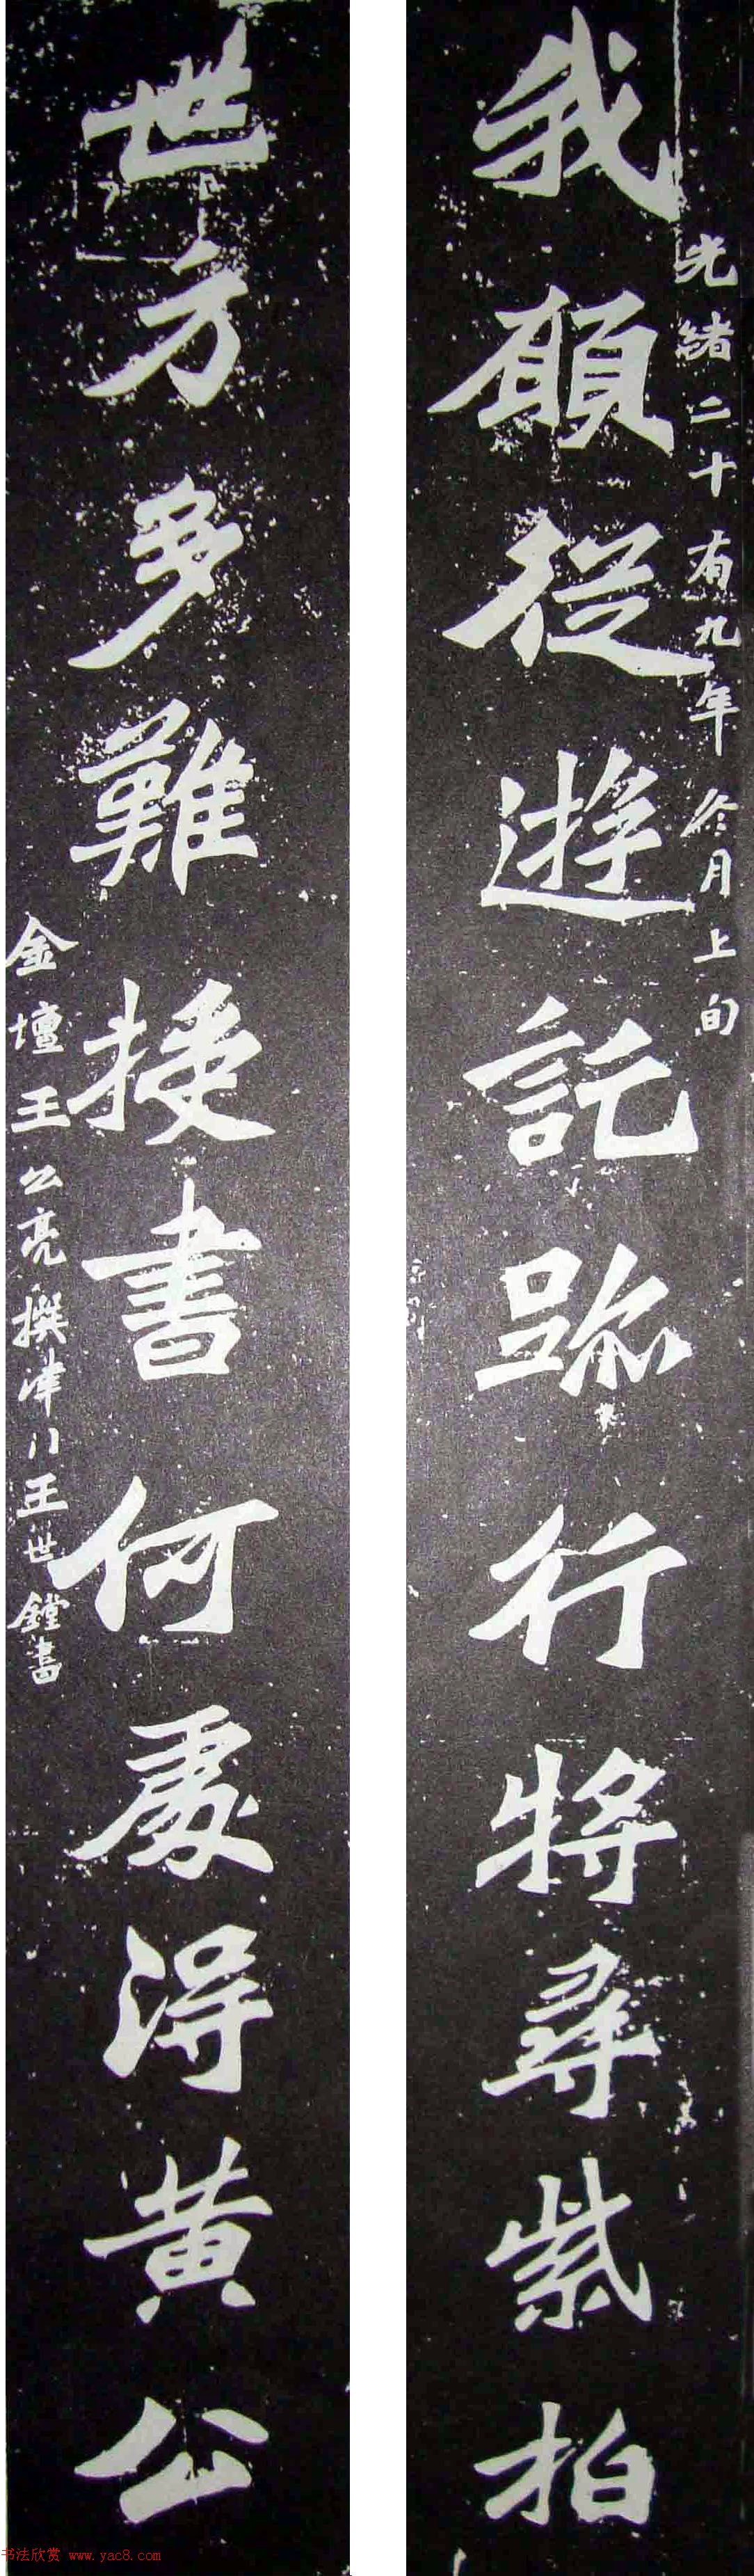 光緒二十有九年冬月上旬
我願從遊託跡行將尋紫柏
世方多難授書何處得黃公
金壇王公亮撰津門王世鏜書
书法欣赏 www.yac8.com